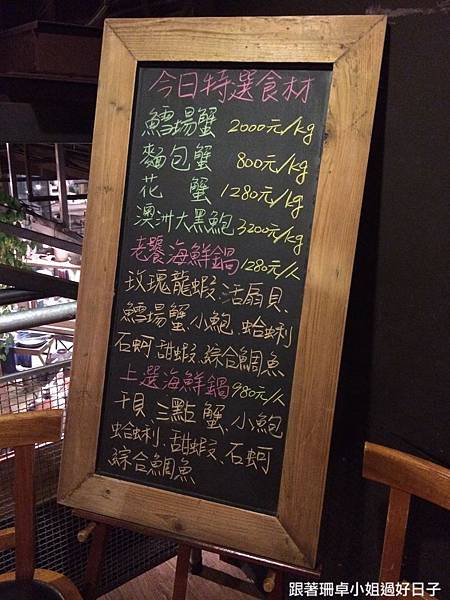 今日特選食材
鱈場蟹 2000元/kg
麵包蟹 800元/kg
花 蟹 1280元/kg
澳洲大黑鮑 3200元/kg
老饕海鮮鍋 1280元/人
玫瑰龍蝦、活扇貝、
鱈場蟹、小鮑、蛤蜊
石蚵、甜蝦、綜合鯛魚
上選海鮮鍋 980元/人
干貝、三點蟹、小鮑
蛤蜊、甜蝦、石蚵
綜合鯛魚
跟著珊卓小姐過好日子